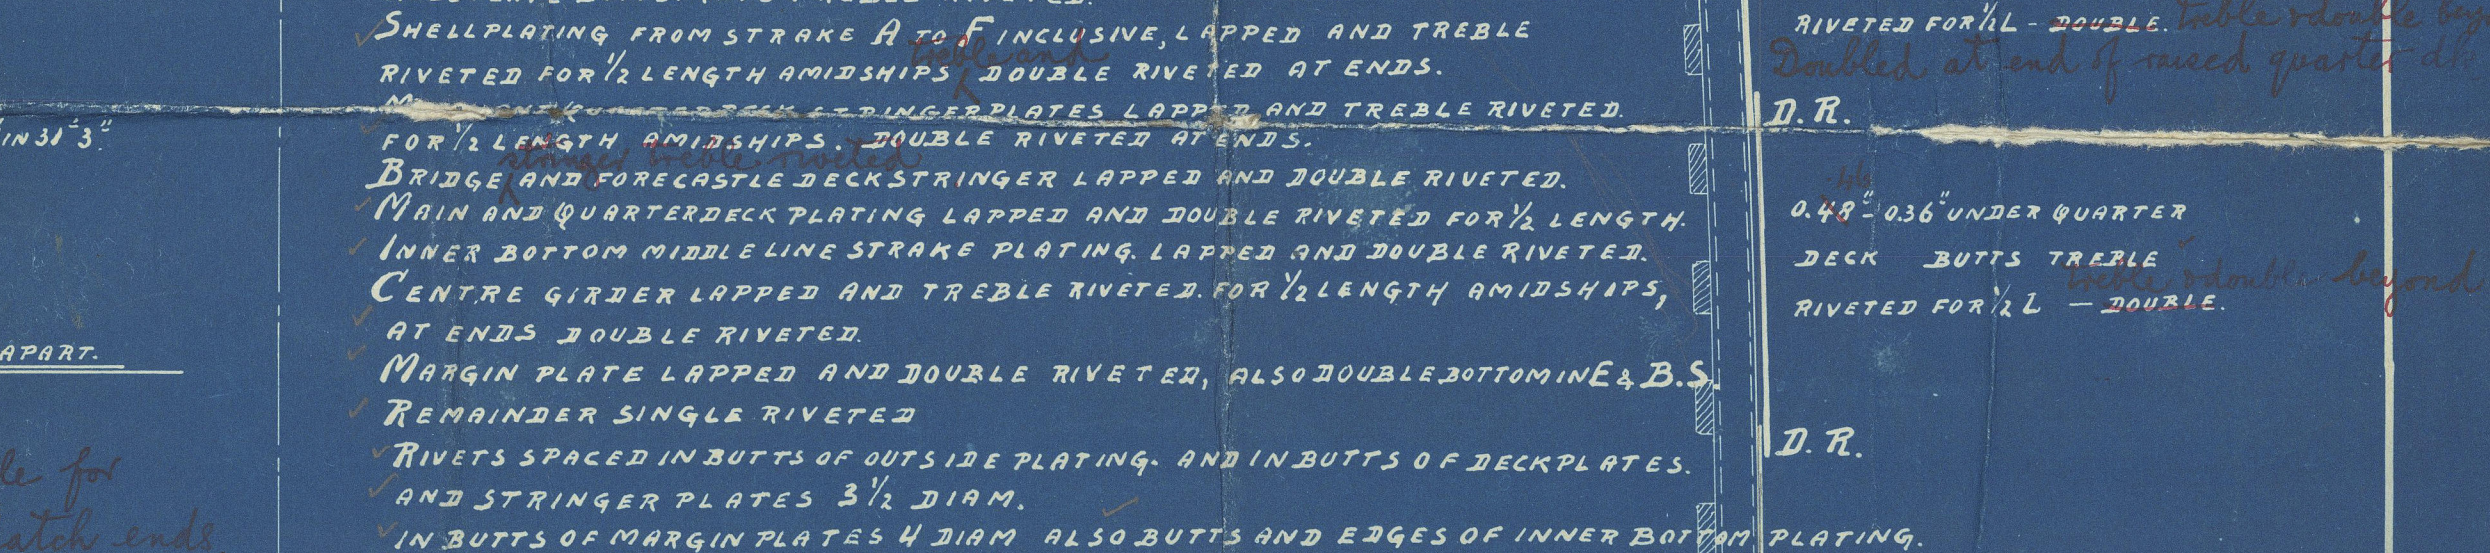 SHELLPLATING FROM STRAKE A TO F INCLUSIVE, LAPPED AND TREBLE
treble and
RIVETED FOR 1/2 LENGTH AMIDSHIPS DOUBLE RIVETED AT ENDS.
STRINGERPLATES LAPPED AND TREBLE RIVETED.
FOR 1/2 LENGTH AMIDSHIPS. DOUBLE RIVETED AT ENDS.
stringer treble riveted
BRIDGE AND FORECASTLE DECKSTRINGER LAPPED AND DOUBLE RIVETED.
MAIN AND QUARTERDECK PLATING LAPPED AND DOUBLE RIVETED FOR 1/2 LENGTH.
INNER BOTTOM MIDDLE LINE STRAKE PLATING. LAPPED AND DOUBLE RIVETED.
CENTRE GIRDER LAPPED AND TREBLE RIVETED. FOR 1/2 LENGTH AMIDSHIPS,
AT ENDS DOUBLE RIVETED.
MARGIN PLATE LAPPED AND DOUBLE RIVETED, ALSO DOUBLE BOTTOM IN E & B.S.
REMAINDER SINGLE RIVETED
RIVETS SPACED IN BUTTS OF OUTSIDE PLATING. AND IN BUTTS OF DECKPLATES.
AND STRINGER PLATES 3 1/2 DIAM.
IN BUTTS OF MARGIN PLATES 4 DIAM ALSO BUTTS AND EDGES OF INNER BOTTOM PLATING.
IN 31'-3"
APART.
for
ends
RIVETED FOR 1/2 L - DOUBLE. treble & double
Doubled at end of raised quarter
D.R.
.46
0.48" - 0.36" UNDER QUARTER
DECK BUTTS TREBLE
treble & double beyond
RIVETED FOR 1/2 L — DOUBLE.
D.R.